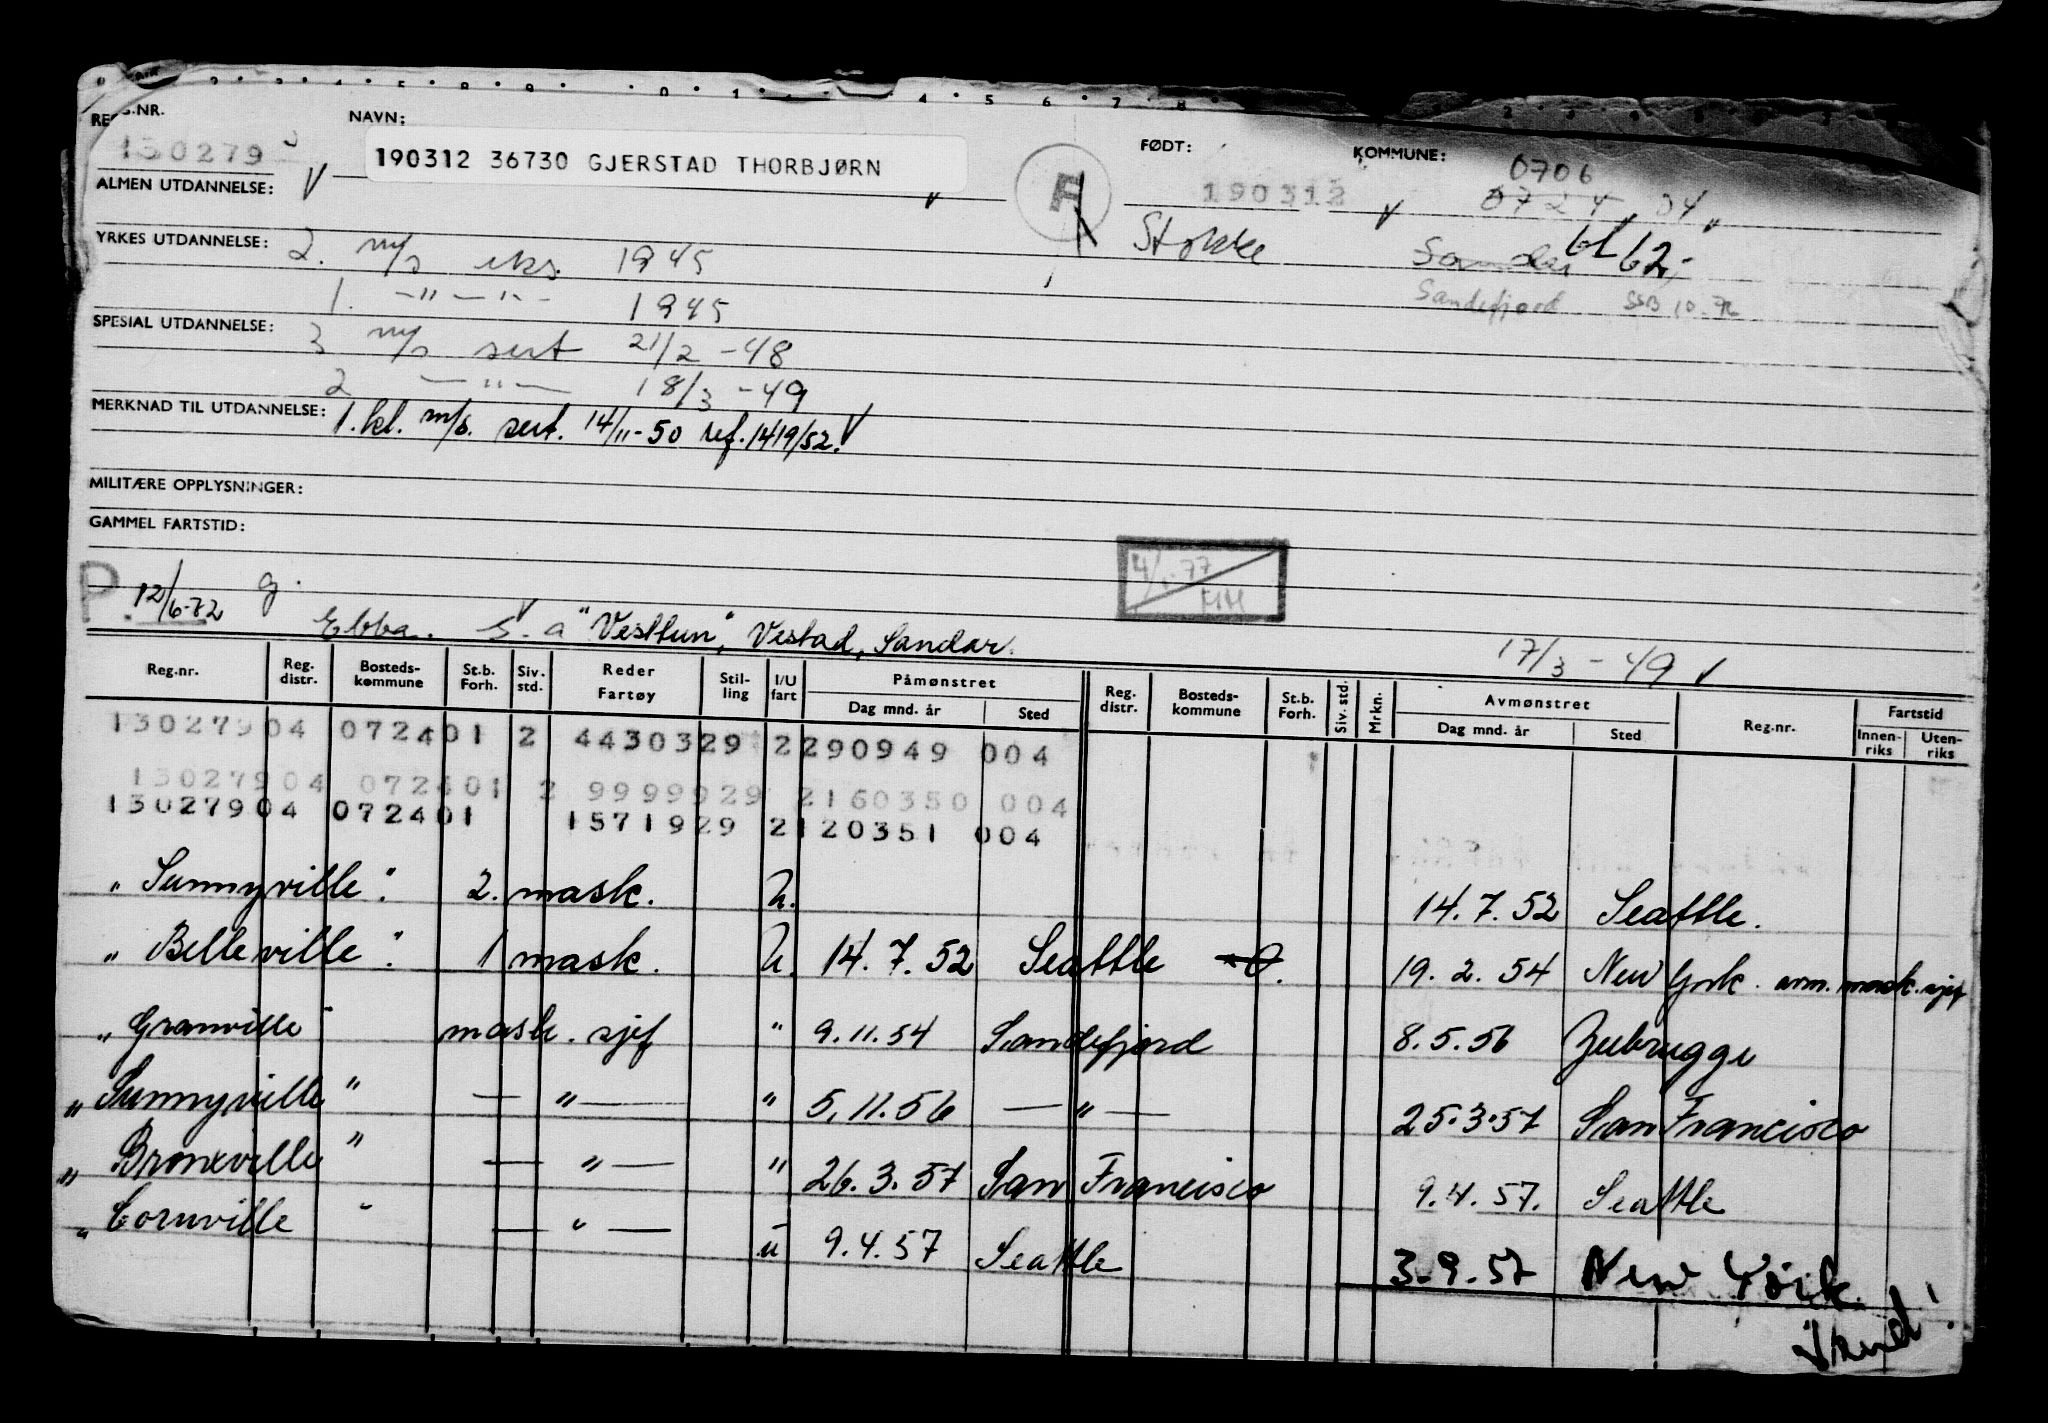 REG.NR. NAVN: FØDT: KOMMUNE: 0706
130279 190312 36730 GJERSTAD THORBJØRN 190312 0724 04
ALMEN UTDANNELSE: Stokke Sandar 62
YRKES UTDANNELSE: 2. m/s eks. 1945
1. -"- "- 1945 Sandefjord SSB 10.72
SPESIAL UTDANNELSE: 3 m/s sert 21/2 -48
2 -"- 18/3 -49
MERKNAD TIL UTDANNELSE: 1.kl. m/s. sert. 14/11-50 ref. 1419/52.
MILITÆRE OPPLYSNINGER:
GAMMEL FARTSTID:
4/1-77 HH
P. 12/6-72 g.
Ebba. S. a "Vesttun", Vestad, Sandar. 17/3 -49
Reg.nr. Reg. distr. Bosteds-kommune St.b. Forh. Siv. std. Reder Fartøy Stil-ling I/U fart Påmønstret Reg. distr. Bosteds-kommune St.b. Forh. Siv. std. Mrkn. Avmønstret Reg.nr. Fartstid
Dag mnd. år Sted Dag mnd. år Sted Innen-riks Uten-riks
130279 04 0724 01 2 4430329 2 290949 004
130279 04 0724 01 2 9999929 2 160350 004
130279 04 0724 01 1571929 2 120351 004
"Sunnyville". 2. mask. U. 14.7.52 Seattle.
"Belleville". 1 mask. U. 14.7.52 Seattle 19.2.54 New York. avm. mask. sjef
"Granville" mask. sjef " 9.11.54 Sandefjord 8.5.56 Zeebrugge
"Sunnyville" — " — " 5.11.56 — " — 25.3.57 San Francisco
"Bronxville" — " — " 26.3.57 San Francisco 9.4.57. Seattle
"Cornville" — " — u 9.4.57 Seattle 3.9.57 New York.